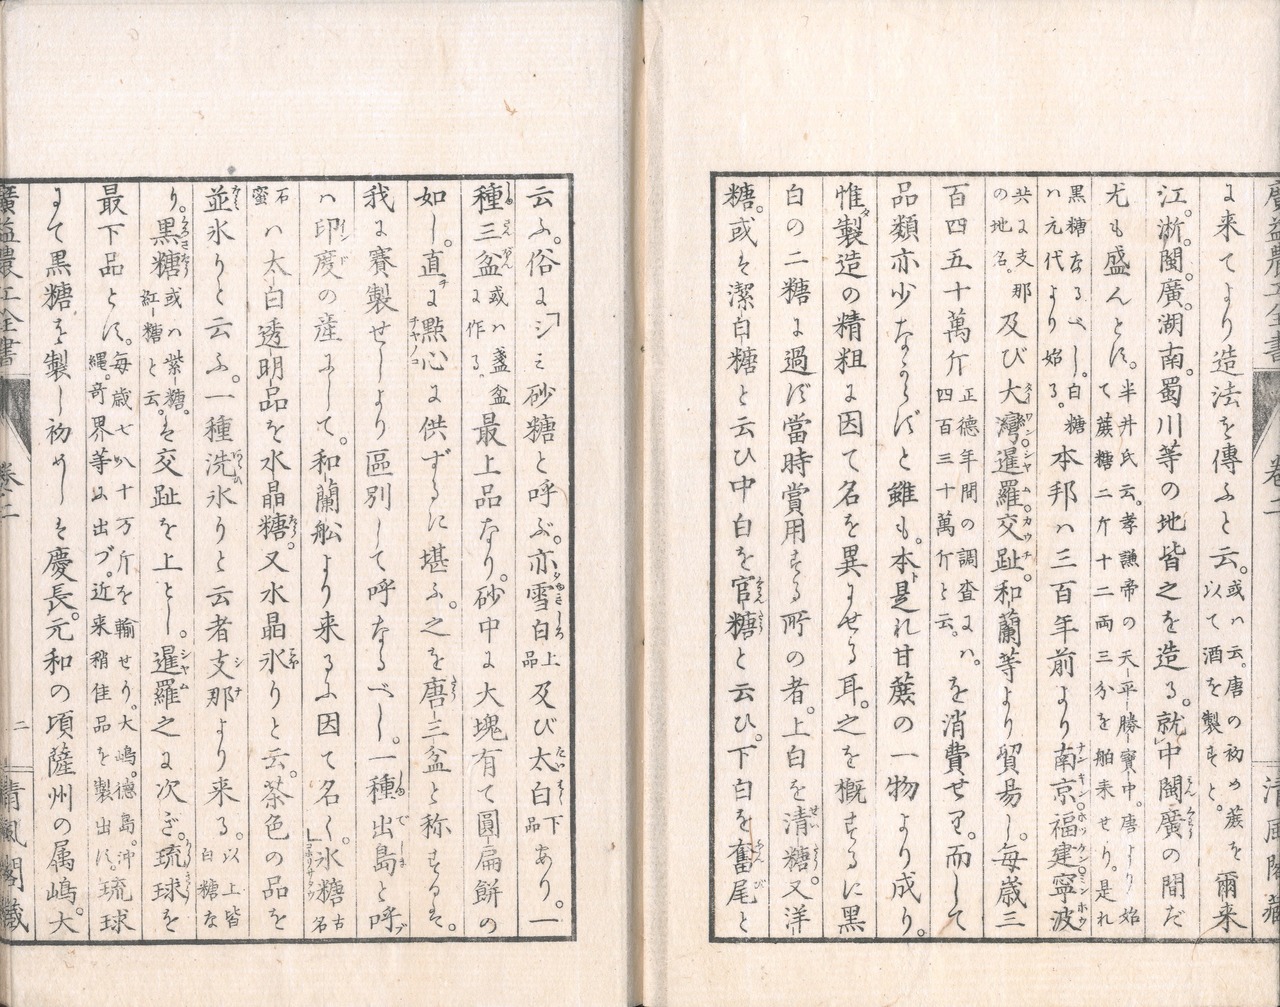 廣益農工全書　巻二　清風閣藏
に来てより造法を傳ふと云。或ハ云。唐の初め蔗を爾来以て酒を製すと。
江。浙。閩。廣。湖南。蜀川等の地皆之を造る。就中閩廣の間だ
尤も盛んとす。半井氏云。孝謙帝の天平勝寶中。唐より始て蔗糖二斤十二両三分を舶来せり。是れ
黒糖なるべし。白糖ハ元代より始る。本邦ハ三百年前より南京福建寧波
共に支那の地名。及び大灣暹羅交趾。和蘭等より貿易し。毎歳三
百四五十萬斤正徳年間の調査にハ。四百三十萬斤と云。を消費せり。而して
品類亦少なからずと雖も。本是れ甘蔗の一物より成り。
惟製造の精粗に因て名を異にせる耳。之を概するに黒
白の二糖に過ず當時賞用する所の者。上白を清糖。又洋
糖。或は潔白糖と云ひ中白を官糖と云ひ。下白を奮尾と
云ふ。俗に「シミ砂糖と呼ぶ。亦雪白上品及び太白下品あり。一
種三盆或ハ盞盆に作る。最上品なり。砂中に大塊有て圓扁餅の
如し。直に點心に供ずるに堪ふ。之を唐三盆と称するは。
我に賽製せしより區別して呼なるべし。一種出島と呼
ハ印度の産にして。和蘭舩より来るふ因て名く。氷糖古名
石蜜ハ太白透明品を水晶糖。又水晶氷りと云。茶色の品を
並氷りと云ふ。一種洗氷りと云者支那より来る。以上皆白糖な
り。黒糖或ハ紫糖。紅糖と云。は交趾を上とし。暹羅之に次ぎ。琉球を
最下品とす。毎歳七八十万斤を輸せり。大嶋。徳島。沖縄。奇界等に出づ。近来稍佳品を製出す。琉球
にて黒糖を製し初めしは慶長。元和の頃薩州の属嶋。大
廣益農工全書　巻二　二　清風閣藏